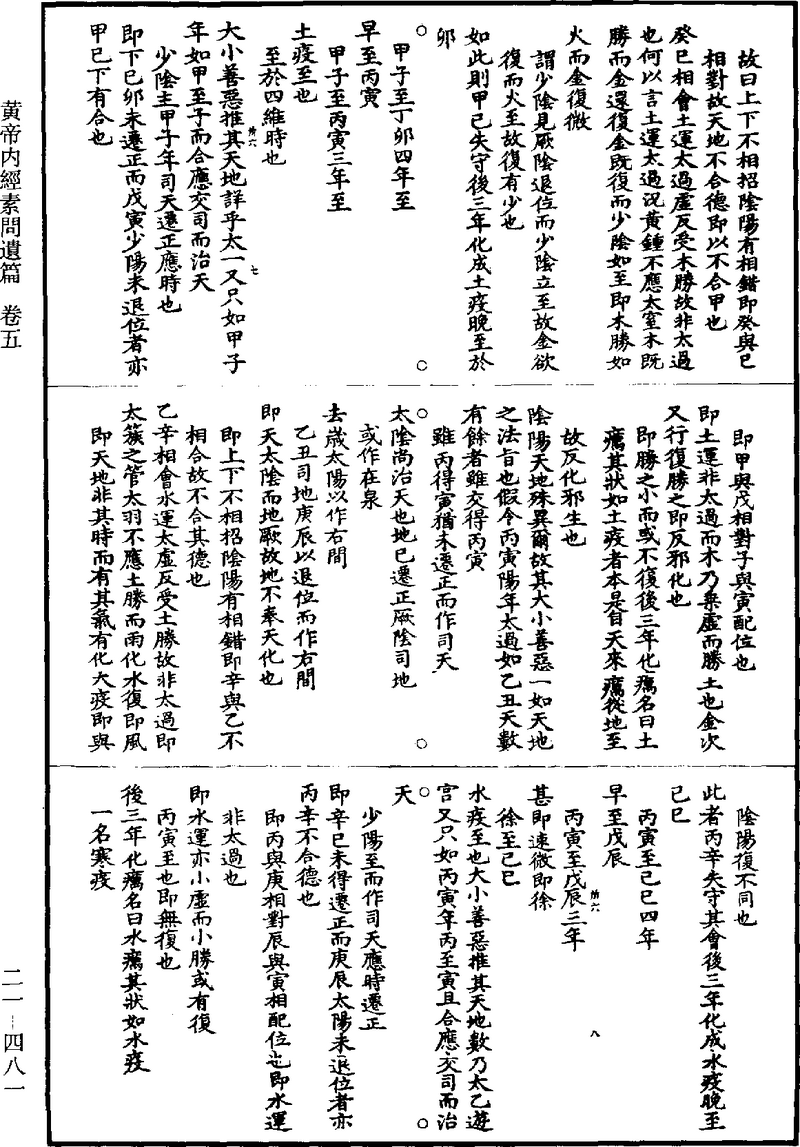 故曰上下不相招陰陽有相錯即癸與巳
相對故天地不合德即以不合甲也
癸巳相會土運太過虛反受木勝故非太過
也何以言土運太過況黃鍾不應太窒木既
勝而金還復金既復而少陰如至即木勝如
火而金復微
謂少陰見厥陰退位而少陰立至故金欲
復而火至故復有少也
如此則甲己失守後三年化成土疫晚至於
卯
甲子至丁卯四年至
早至丙寅
甲子至丙寅三年至
土疫至也
至於四維時也
大小善惡推其天地詳乎太一又只如甲子
年如甲至子而合應交司而治天
少陰主甲子年司天遷正應時也
即下巳卯未遷正而戊寅少陽未退位者亦
甲巳下有合也
即甲與戊相對子與寅配位也
即土運非太過而木乃乘虛而勝土也金次
又行復勝之即反邪化也
即勝之小而或不復後三年化癘名曰土
癘其狀如土疫者本是自天來癘從地至
故反化邪生也
陰陽天地殊異爾故其大小善惡一如天地
之法旨也假令丙寅陽年太過如乙丑天數
有餘者雖交得丙寅
雖丙得寅猶未遷正而作司天
太陰尚治天也地已遷正厥陰司地
或作在泉
去歲太陽以作右間
乙丑司地庚辰以退位而作右間
即天太陰而地厥故地不奉天化也
即上下不相招陰陽有相錯即辛與乙不
相合故不合其德也
乙辛相會水運太虛反受土勝故非太過即
太簇之管太羽不應土勝而雨化水復即風
即天地非其時而有其氣有化大疫即與
陰陽復不同也
此者丙辛失守其會後三年化成水疫晚至
己巳
丙寅至己巳四年
早至戊辰
丙寅至戊辰三年
甚即速微即徐
徐至己巳
水疫至也大小善惡推其天地數乃太乙遊
宮又只如丙寅年丙至寅且合應交司而治
天
少陽至而作司天應時遷正
即辛巳未得遷正而庚辰太陽未退位者亦
丙辛不合德也
即丙與庚相對辰與寅相配位也即水運
非太過也
即水運亦小虛而小勝或有復
丙寅至也即無復也
後三年化癘名曰水癘其狀如水疫
一名寒疫
黃帝內經素問遺篇 卷五
二一–四八一